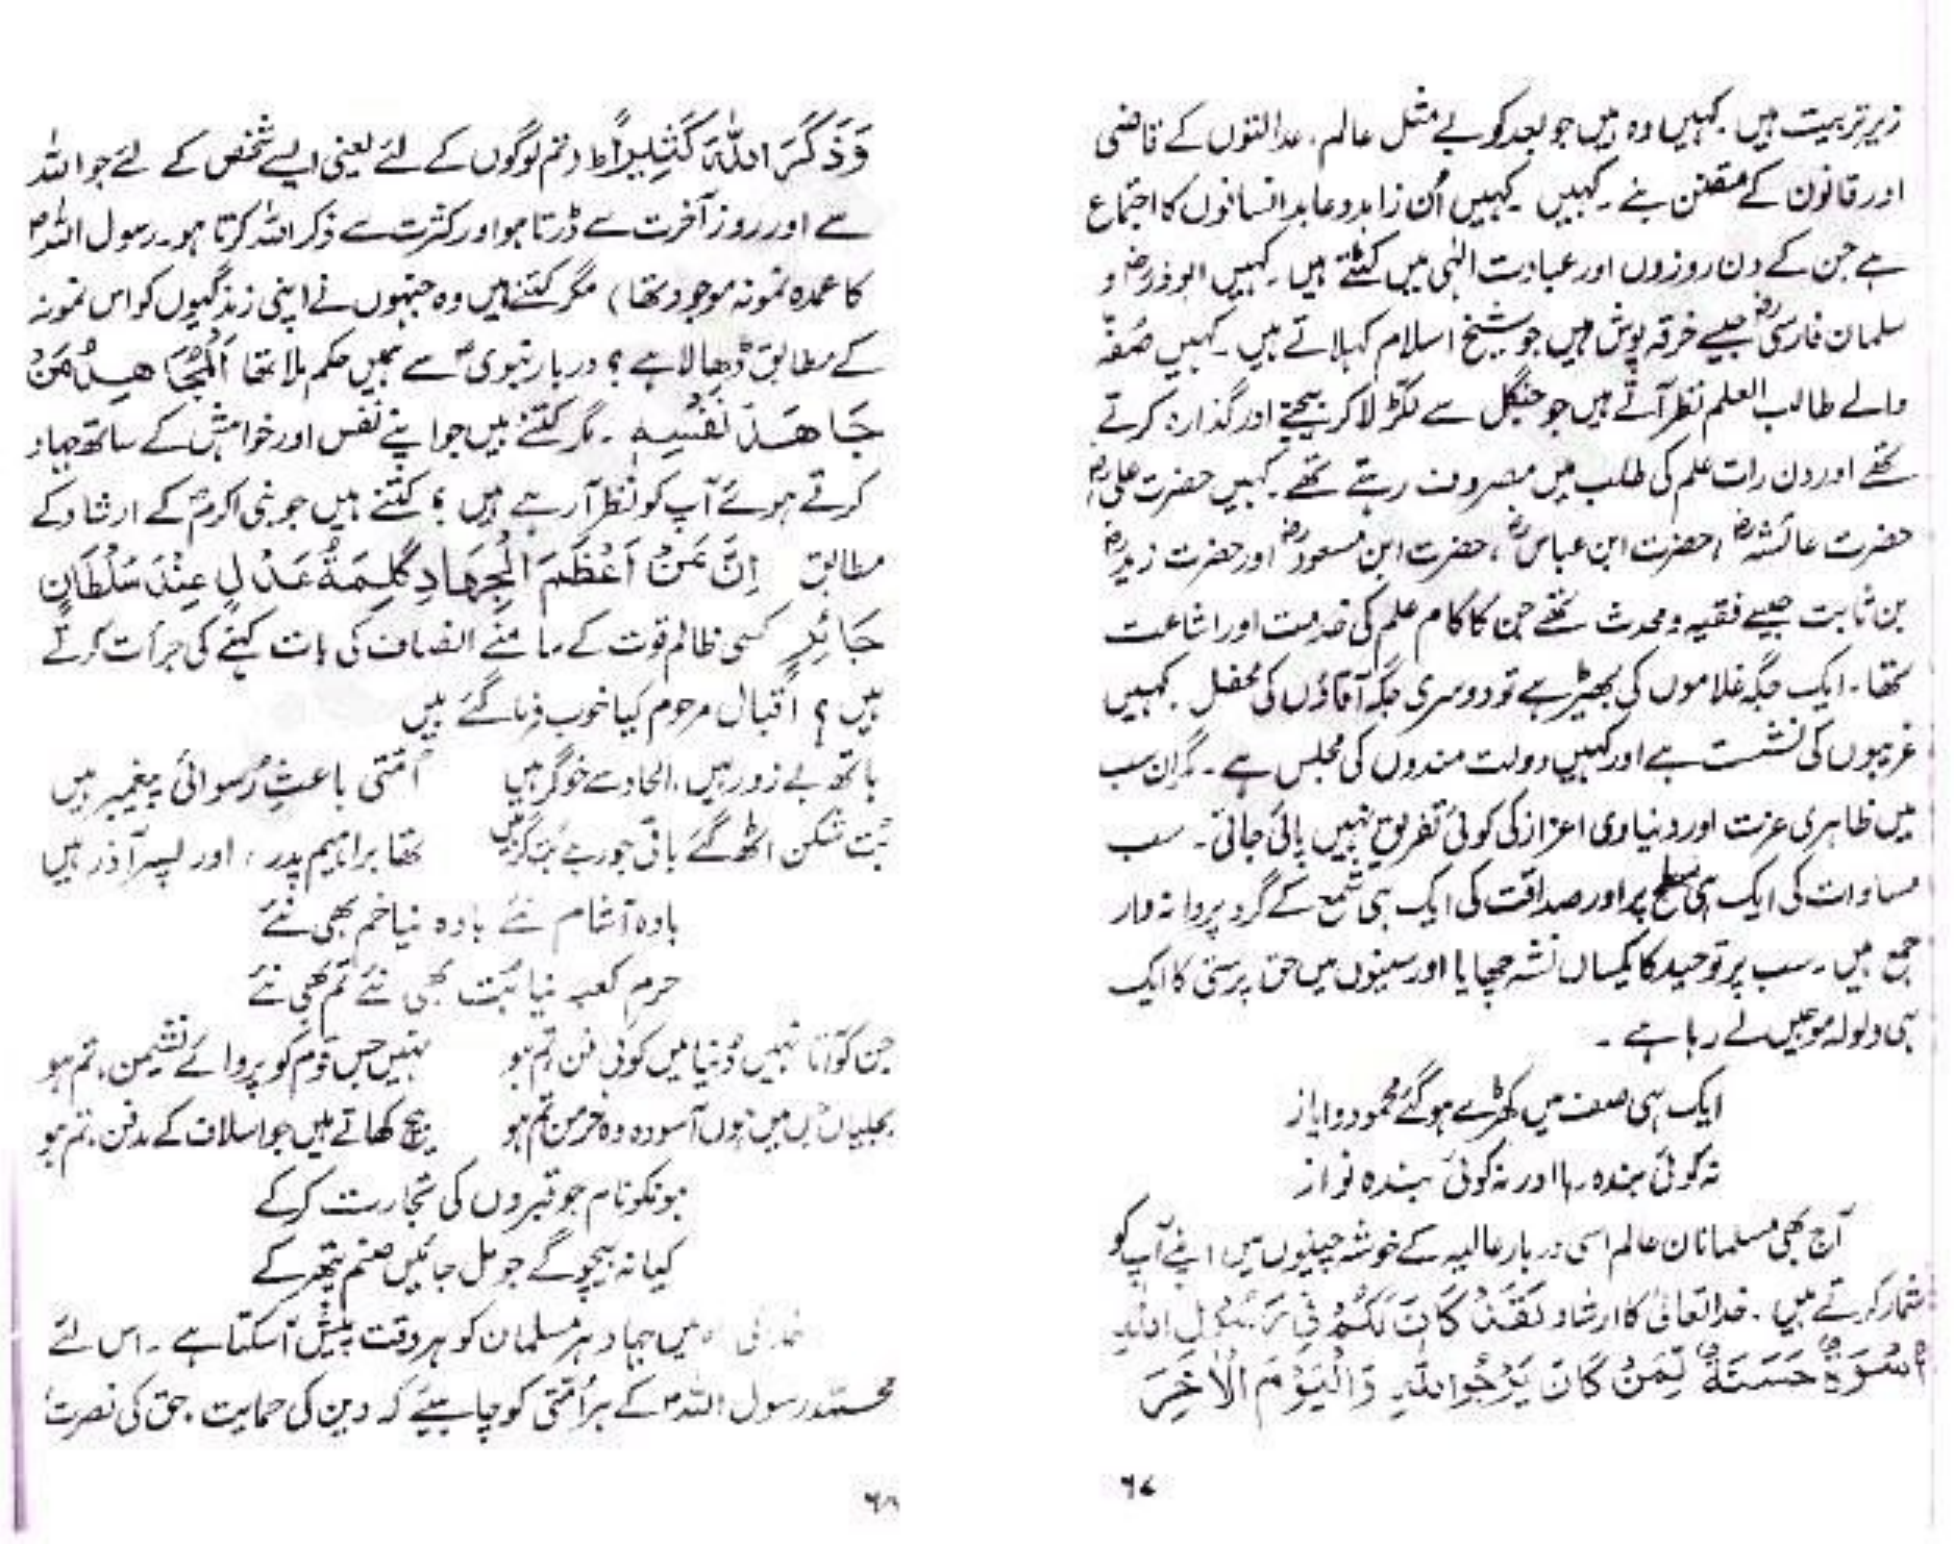 زیر تربیت ہیں۔ کہیں وہ ہیں جو بعد کو بے مثل عالم، عدالتوں کے قاضی
اور قانون کے مقنن بنے۔ کہیں۔ کہیں اُن زاہد و عابد انسانوں کا اجتماع
ہے جن کے دن روزوں اور عبادت الٰہی میں کٹتے ہیں۔ کہیں ابوذرؓ و
سلمان فارسیؓ جیسے خرقہ پوش ہیں جو شیخ اسلام کہلاتے ہیں۔ کہیں صُفّہ
والے طالب العلم نظر آتے ہیں جو جنگل سے لکڑ لا کر بیچتے اور گذارہ کرتے
تھے اور دن رات علم کی طلب میں مصروف رہتے تھے۔ کہیں حضرت علیؓ،
حضرت عائشہؓ، حضرت ابن عباسؓ، حضرت ابن مسعودؓ اور حضرت زیدؓ
بن ثابت جیسے فقیہ و محدث تھے جن کا کام علم کی خدمت اور اشاعت
تھا۔ ایک جگہ غلاموں کی بھیڑ ہے تو دوسری جگہ آقاؤں کی محفل۔ کہیں
غریبوں کی نشست ہے اور کہیں دولت مندوں کی مجلس ہے۔ مگر ان سب
میں ظاہری عزت اور دنیاوی اعزاز کی کوئی تفریق نہیں پائی جاتی۔ سب
مساوات کی ایک ہی سطح پر اور صداقت کی ایک ہی شمع کے گرد پروانہ وار
جمع ہیں۔ سب پر توحید کا یکساں نشہ چھایا اور سینوں میں حق پرستی کا ایک
ہی ولولہ موجیں لے رہا ہے۔
ایک ہی صف میں کھڑے ہو گئے محمود و ایاز
نہ کوئی بندہ رہا اور نہ کوئی بندہ نواز
آج بھی مسلمانان عالم اسی دربار عالیہ کے خوشہ چینوں میں اپنے آپ کو
شمار کرتے ہیں۔ خدا تعالیٰ کا ارشاد لَقَدْ كَانَ لَكُمْ فِيْ رَسُوْلِ اللّٰهِ
اُسْوَةٌ حَسَنَةٌ لِّمَنْ كَانَ يَرْجُوا اللّٰهَ وَالْيَوْمَ الْاٰخِرَ
۶۷
وَذَكَرَ اللّٰهَ كَثِيْراً ط (تم لوگوں کے لئے یعنی ایسے شخص کے لئے جو اللہ
سے اور روز آخرت سے ڈرتا ہو اور کثرت سے ذکر اللہ کرتا ہو۔ رسول اللہؐ
کا عمدہ نمونہ موجود تھا) مگر کتنے ہیں وہ جنہوں نے اپنی زندگیوں کو اس نمونہ
کے مطابق ڈھالا ہے؟ دربار نبویؐ سے ہمیں حکم ملا تھا اَلْمُجَاهِدُ مَنْ
جَاهَدَ نَفْسَه۔ مگر کتنے ہیں جو اپنے نفس اور خواہش کے ساتھ جہاد
کرتے ہوئے آپ کو نظر آ رہے ہیں؟ کتنے ہیں جو نبی اکرمؐ کے ارشاد کے
مطابق اِنَّ مِنْ اَعْظَمِ الْجِهَادِ كَلِمَةُ عَدْلٍ عِنْدَ سُلْطَانٍ
جَائِرٍ کسی ظالم قوت کے سامنے انصاف کی بات کہنے کی جرأت کرتے
ہیں؟ اقبال مرحوم کیا خوب فرما گئے ہیں
ہاتھ بے زور ہیں، الحاد سے خوگر ہیں امتی باعثِ رُسوائی پیغمبر ہیں
بُت شکن اٹھ گئے باقی جو رہے بُت گر ہیں تھا براہیم پدر، اور پسر آذر ہیں
بادہ آشام نئے بادہ نیا خم بھی نئے
حرم کعبہ نیا بُت بھی نئے تم بھی نئے
جن کو آتا نہیں دُنیا میں کوئی فن تم ہو نہیں جس قوم کو پروائے نشیمن، تم ہو
بجلیاں جس میں ہوں آسودہ وہ خرمن تم ہو بیچ کھاتے ہیں جو اسلاف کے مدفن، تم ہو
ہو نکو نام جو قبروں کی تجارت کر کے
کیا نہ بیچو گے جو مل جائیں صنم پتھر کے
میں جہاد ہر مسلمان کو ہر وقت پیش آ سکتا ہے۔ اس لئے
محمد رسول اللہؐ کے ہر اُمتی کو چاہیئے کہ دین کی حمایت، حق کی نصرت
۶۸